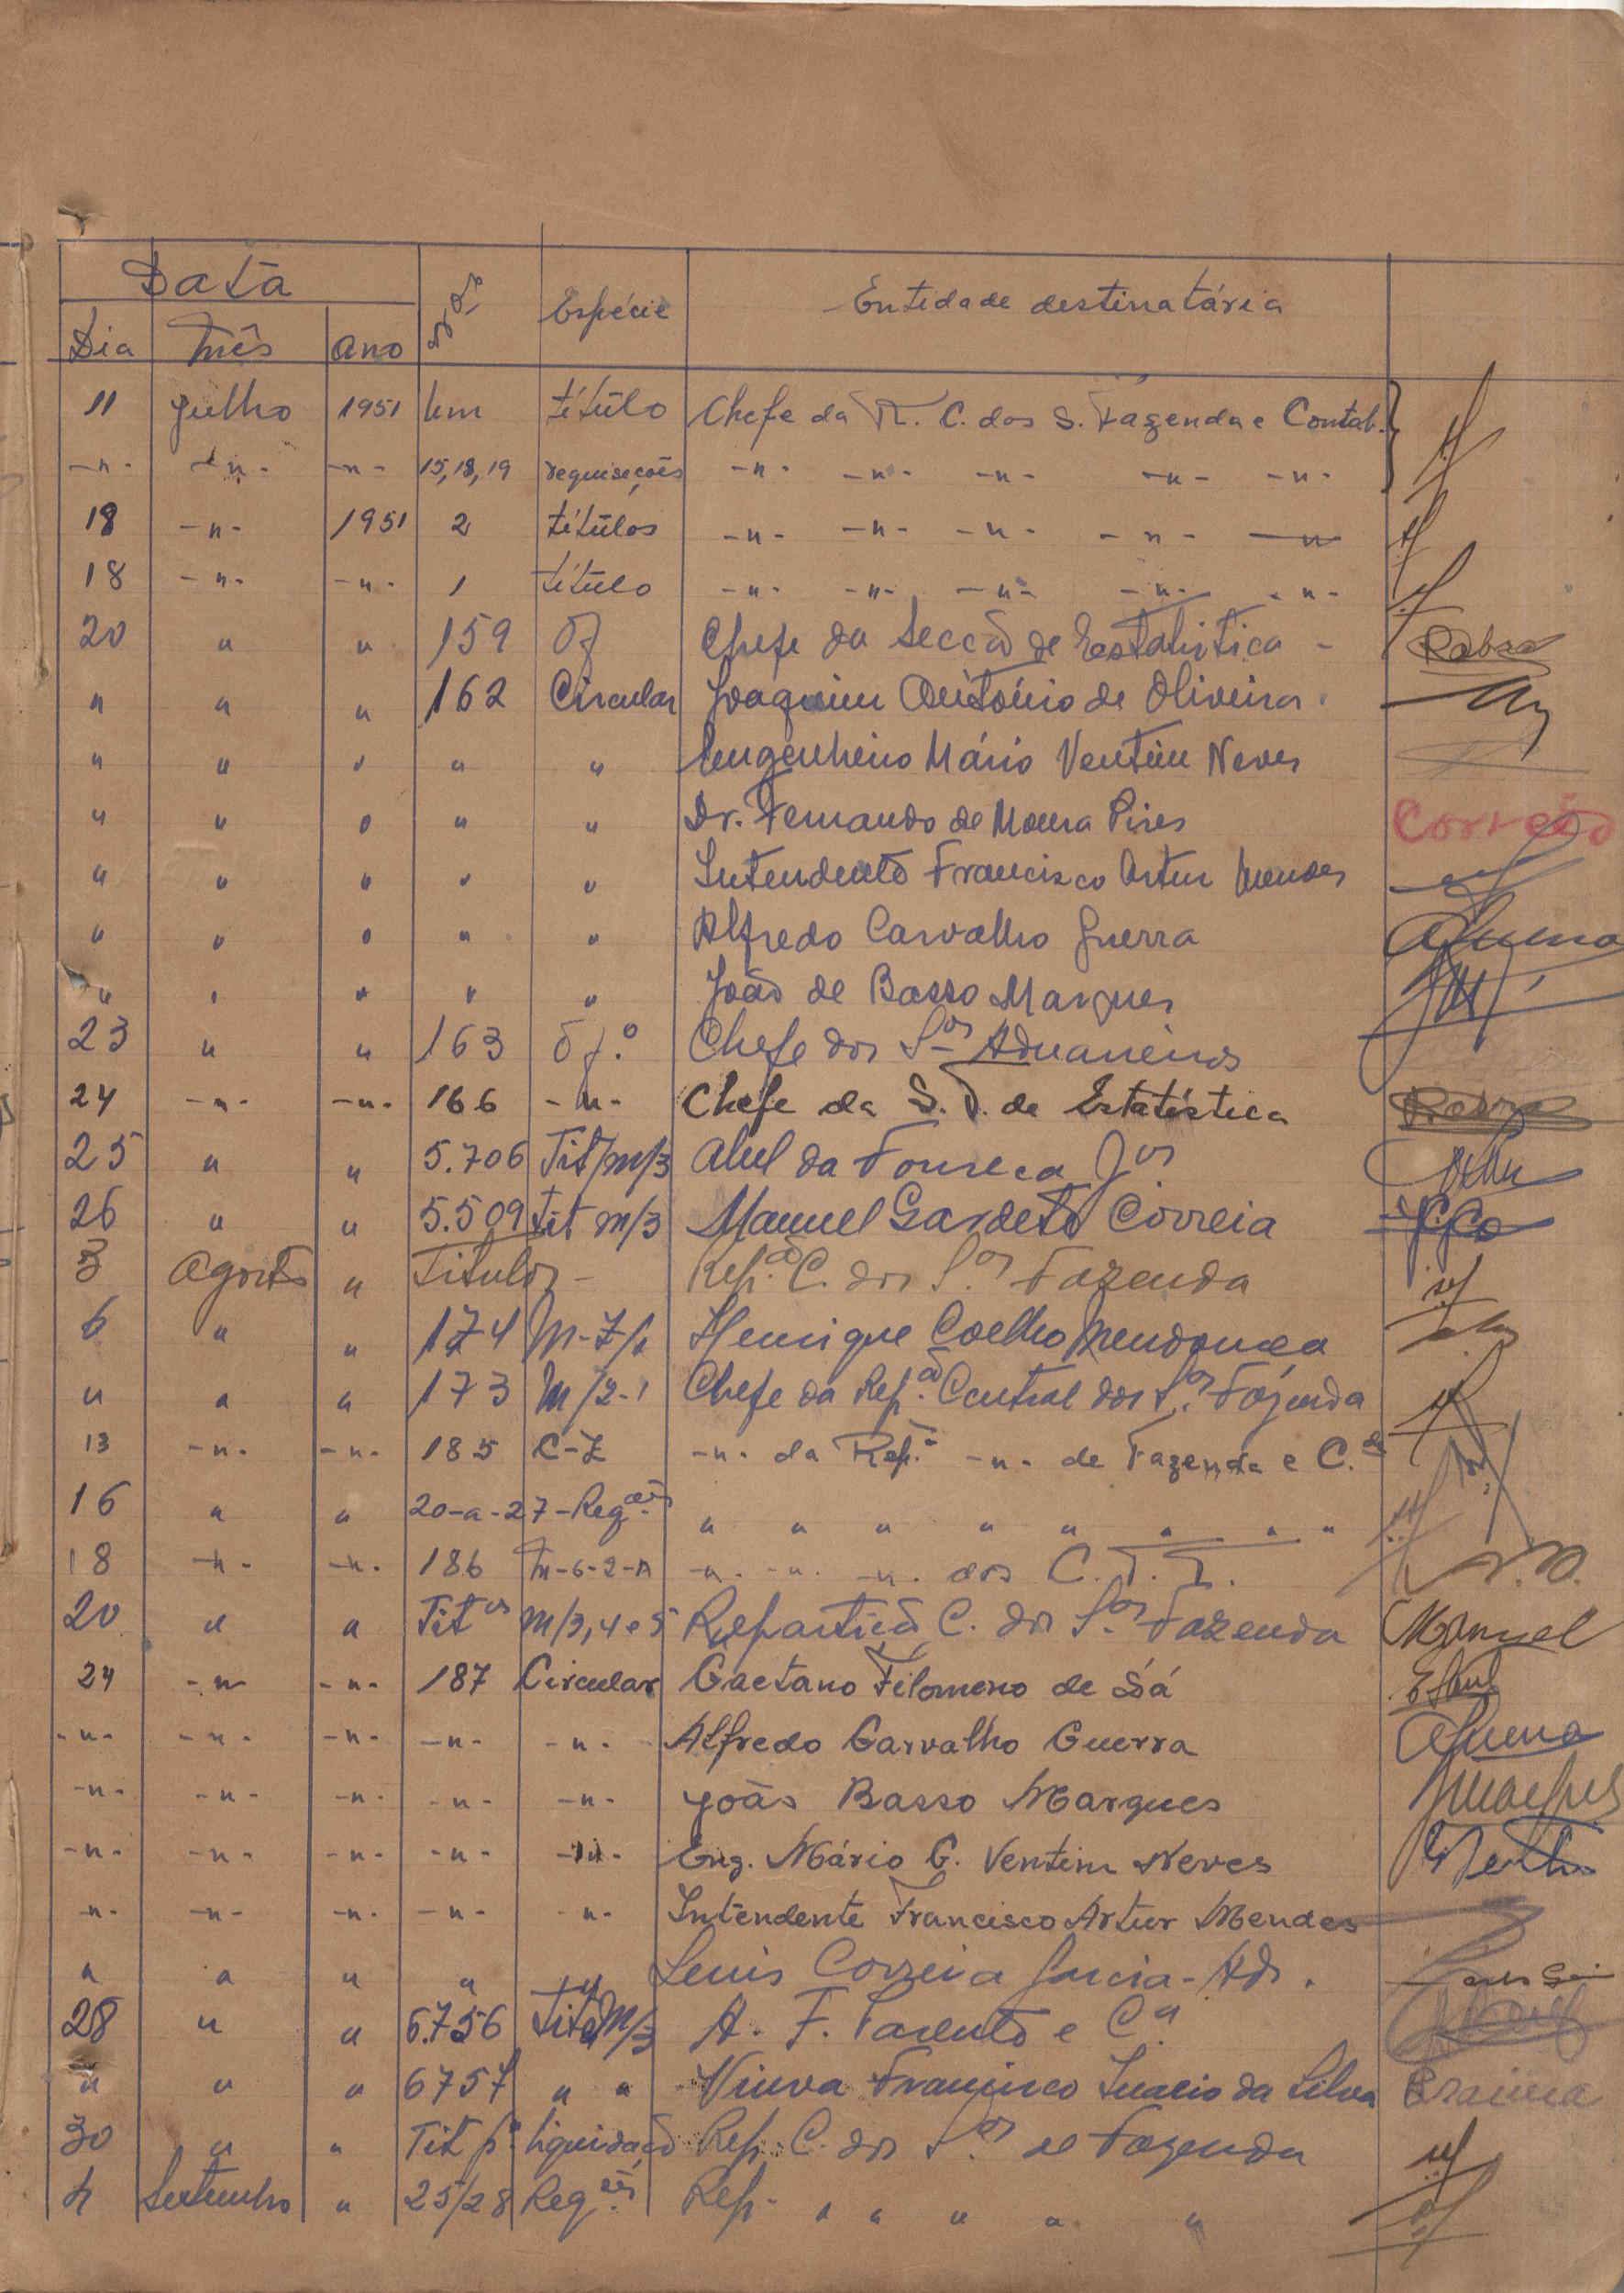 Data
Dia Mês Ano N.º Espécie Entidade destinatária
11 Julho 1951 Um título Chefe da R. C. dos S. Fazenda e Contab.
-"- -"- -"- 15, 18, 19 requiseções -"- -"- -"- -"- -"-
18 -"- 1951 2 títulos -"- -"- -"- -"- -"-
18 -"- -"- 1 título -"- -"- -"- -"- -"-
20 " " 159 Of Chefe da Secção de Estatistica -
" " " 162 Circular Joaquim António de Oliveira
" " " " " Engenheiro Mário Ventim Neves
" " " " " Dr. Fernando de Moura Pires Correão
" " " " " Intendente Francisco Artur Mendes
" " " " " Alfredo Carvalho Guerra
" " " " " João de Basso Marques
23 " " 163 Of.º Chefe dos S.os Aduaneiros
24 -"- -"- 166 -"- Chefe da S. T. de Estatística
25 " " 5.706 Tit/m/3 Abel da Fonseca
26 " " 5.509 tit m/3 Manuel Gardeto Correia
3 Agosto " Titulos - Rep.ão C. dos S.os Fazenda
6 " " 174 Henrique Coelho Mendonça
" " " 173 M/2-1 Chefe da Rep.ão Central dos S.os Fazenda
13 -"- -"- 185 C-Z -"- da Rep. -"- de Fazenda e C.de
16 " " 20-a-27-Reqões " " " " " " " "
18 -"- -"- 186 M-6-2-A -"- -"- -"- dos C. T. T.
20 " " Titos m/3, 4 e 5 Repartição C. dos S.os Fazenda Manuel
24 -"- -"- 187 Circular Caetano Filomeno de Sá
-"- -"- -"- -"- -"- Alfredo Carvalho Guerra
-"- -"- -"- -"- -"- João Basso Marques
-"- -"- -"- -"- -"- Eng. Mário C. Ventim Neves
-"- -"- -"- -"- -"- Intendente Francisco Artur Mendes
" " " " " Luis Correia Garcia - Ad.
28 " " 6.756 Tit. M/3 A. F. Parento e C.ª
" " " 6757 " " Viuva Francisco Inacio da Silva
30 " " Tit pª liquidação Rep. C. dos S.os de Fazenda
4 Setembro " 25/28 Reqões Rep. " " " " "